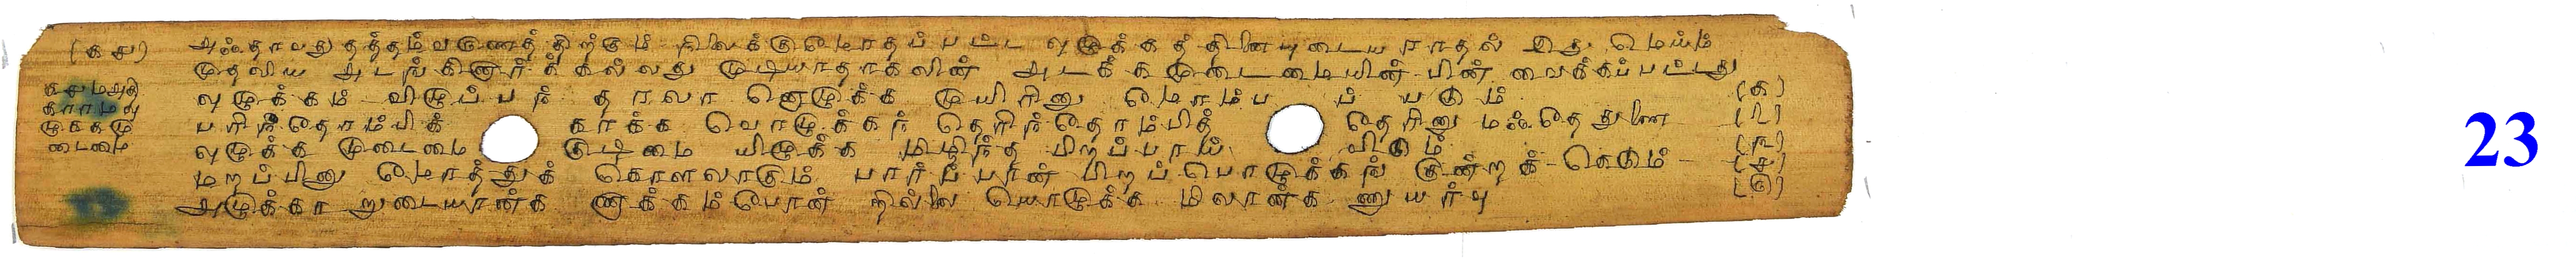 (௧௪) அஃதாவது தத்தம் வருணத்திற்கும் நிலைக்கு மோதப்பட்ட வுழுக்கத்தினையுடைய ராதல் இது மெய்ம்
முதலிய அடங்கினார்க் கல்லது முடியாதாகலின் அடக்கமுடைமையின் பின் வைக்கப்பட்டது
௧௪ மதி
காரமவு
ழுககமு
டைமை
வுழுக்கம் விழுப்பந் தரலா னொழுக்க முயிரினு மோம்ப ப் படும் (௧)
பரிந்தோம்பிக் காக்க வொழுக்கந் தெரிந்தோம்பித் தேரினு மஃதே துணை (௨)
வுழுக்க முடைமை குடிமை யிழுக்க மிழிந்த பிறப்பாய் விடும் (௩)
மறப்பினு மோத்துக் கொளலாகும் பார்ப்பான் பிறப்பொழுக்கங் குன்றக் கெடும் (௪)
அழுக்கா றுடையான்க ணாக்கம்போன் றில்லை யொழுக்க மிலான்க ணுயர்வு (௫)
23